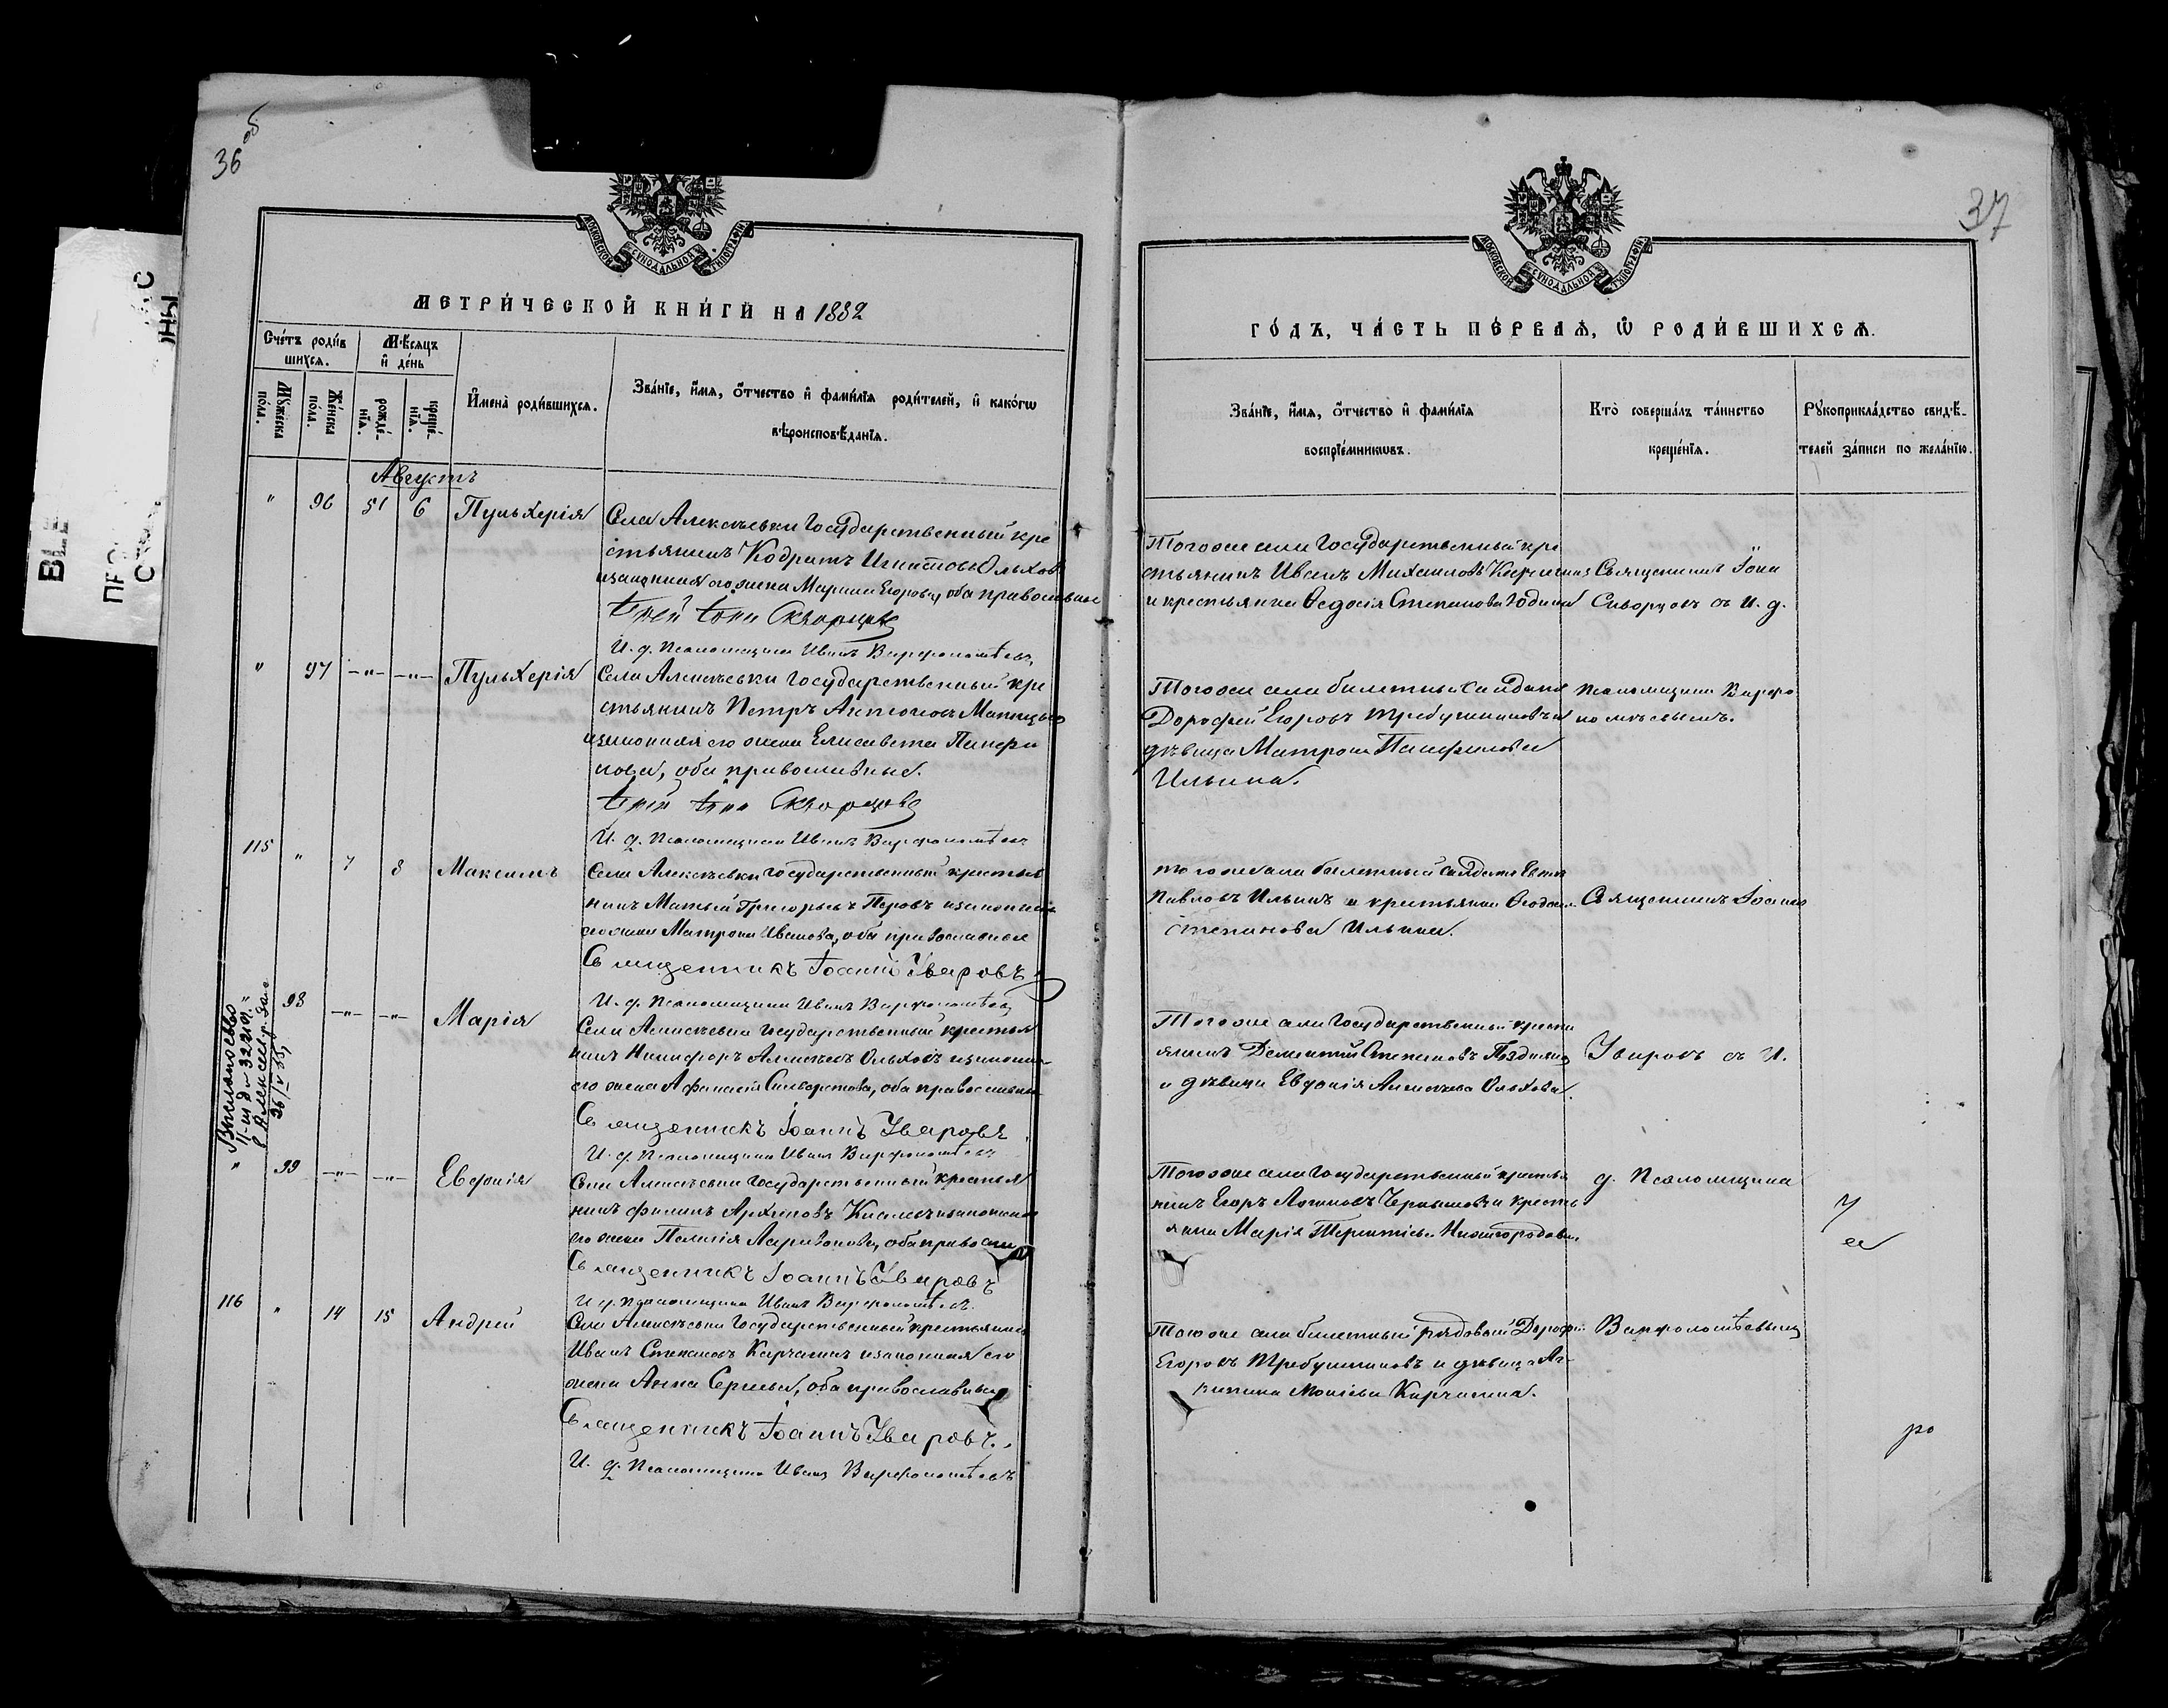 36 об
МОСКОВСКОЙ СУНОДАЛЬНОЙ ТИПОГРАФІИ
МЕТРИ́ЧЕСКОЙ КНИ́ГИ НА 1882
Счетъ роди́в
шихсѧ.
Мѣсѧцъ
и де́нь
Мꙋжеска
по́ла.
Же́нска
по́ла.
рожде́-
нїѧ.
креще́-
нїѧ.
И҆мена̀ роди́вшихсѧ.
Зва́нїе, и҆́мѧ, ѻ҆́тчество и҆ фами́лїѧ роди́телей, и҆ како́гѡ
вѣроисповѣ́данїѧ.
Августъ
" 96 6 Пульхерія
Села Алексѣевки Государственный кре
стьянинъ Кодратъ Ольховъ
и законная его жена Марина Егорова, оба православные
Іерей Іона Скворцовъ
И. д. Псаломщика Иванъ Варфоломѣевъ
" 97 -"- -"- Пульхерія
Села Алексѣевки Государственный кре
стьянинъ Петръ
и законная его жена Елисавета Панфи
лова, оба православные.
Іерей Іона Скворцовъ
И. д. Псаломщика Иванъ Варфоломѣевъ
115 " 7 8 Максимъ
Села Алексѣевки Государственный крестья
нинъ Матвей Григорьевъ Перовъ и законная
его жена Матрона Иванова, оба православные
Священникъ Іоаннъ Уваровъ
И. д. Псаломщика Иванъ Варфоломѣевъ
" 98 -"- -"- Марія
Села Алексѣевки Государственный крестья
нинъ Никифоръ Алексѣевъ Ольховъ и законная
его жена Афанасія Сильверстова, оба православные
Священникъ Іоаннъ Уваровъ
И. д. Псаломщика Иванъ Варфоломѣевъ
" 99 -"- -"- Евдокія
Села Алексѣевки Государственный крестья
нинъ Филипъ Архиповъ и законная
его жена Пелагія Ларіонова, оба православ
Священникъ Іоаннъ Уваровъ
И. д. Псаломщика Иванъ Варфоломѣевъ
116 " 14 15 Андрей
Села Алексѣевки Государственный крестьянинъ
Иванъ Степановъ Карчагинъ и законная его
жена Анна Сергѣева, оба православные
Священникъ Іоаннъ Уваровъ.
И. д. Псаломщика Иванъ Варфоломѣевъ
37
МОСКОВСКОЙ СУНОДАЛЬНОЙ ТИПОГРАФІИ
ГО́ДЪ, ЧА́СТЬ ПЕ́РВАѦ, Ѡ҆ РОДИ́ВШИХСѦ.
Зва́нїе, и҆́мѧ, ѻ҆́тчество и҆ фами́лїѧ
воспрїе́мникѡвъ.
Кто̀ соверша́лъ та́инство
креще́нїѧ.
Рꙋкоприкла́дство свидѣ́-
телей за́писи по жела́нїю.
Того же села Государственный кре
стьянинъ Иванъ Михаиловъ
и крестьянка Ѳедосія Степанова Юдина
Священникъ Іона
Скворцовъ съ И. д.
Того же села билетный солдатъ
Дорофей Егоровъ Требушниковъ и
дѣвица Матрона Панфилова
Ильина.
Псаломщика Варфо
ломѣевымъ.
того же села билетный солдатъ
Павловъ Ильинъ и крестьянка
Степанова Ильина.
Священникъ Іоаннъ
Того же села Государственный кресть
янинъ Дементій Степановъ
и дѣвица Евдокія Алексѣева Ольхова.
Уваровъ съ И.
Того же села Государственный крестья
нинъ Егоръ Логиновъ Чернышовъ и кресть
янка Марія Терентіева Нижегородова.
д. Псаломщика
Того же села билетный рядовой Дорофей
Егоровъ Требушниковъ и дѣвица Аг
рипина Моисѣева Карчагина.
Варфоломѣевымъ